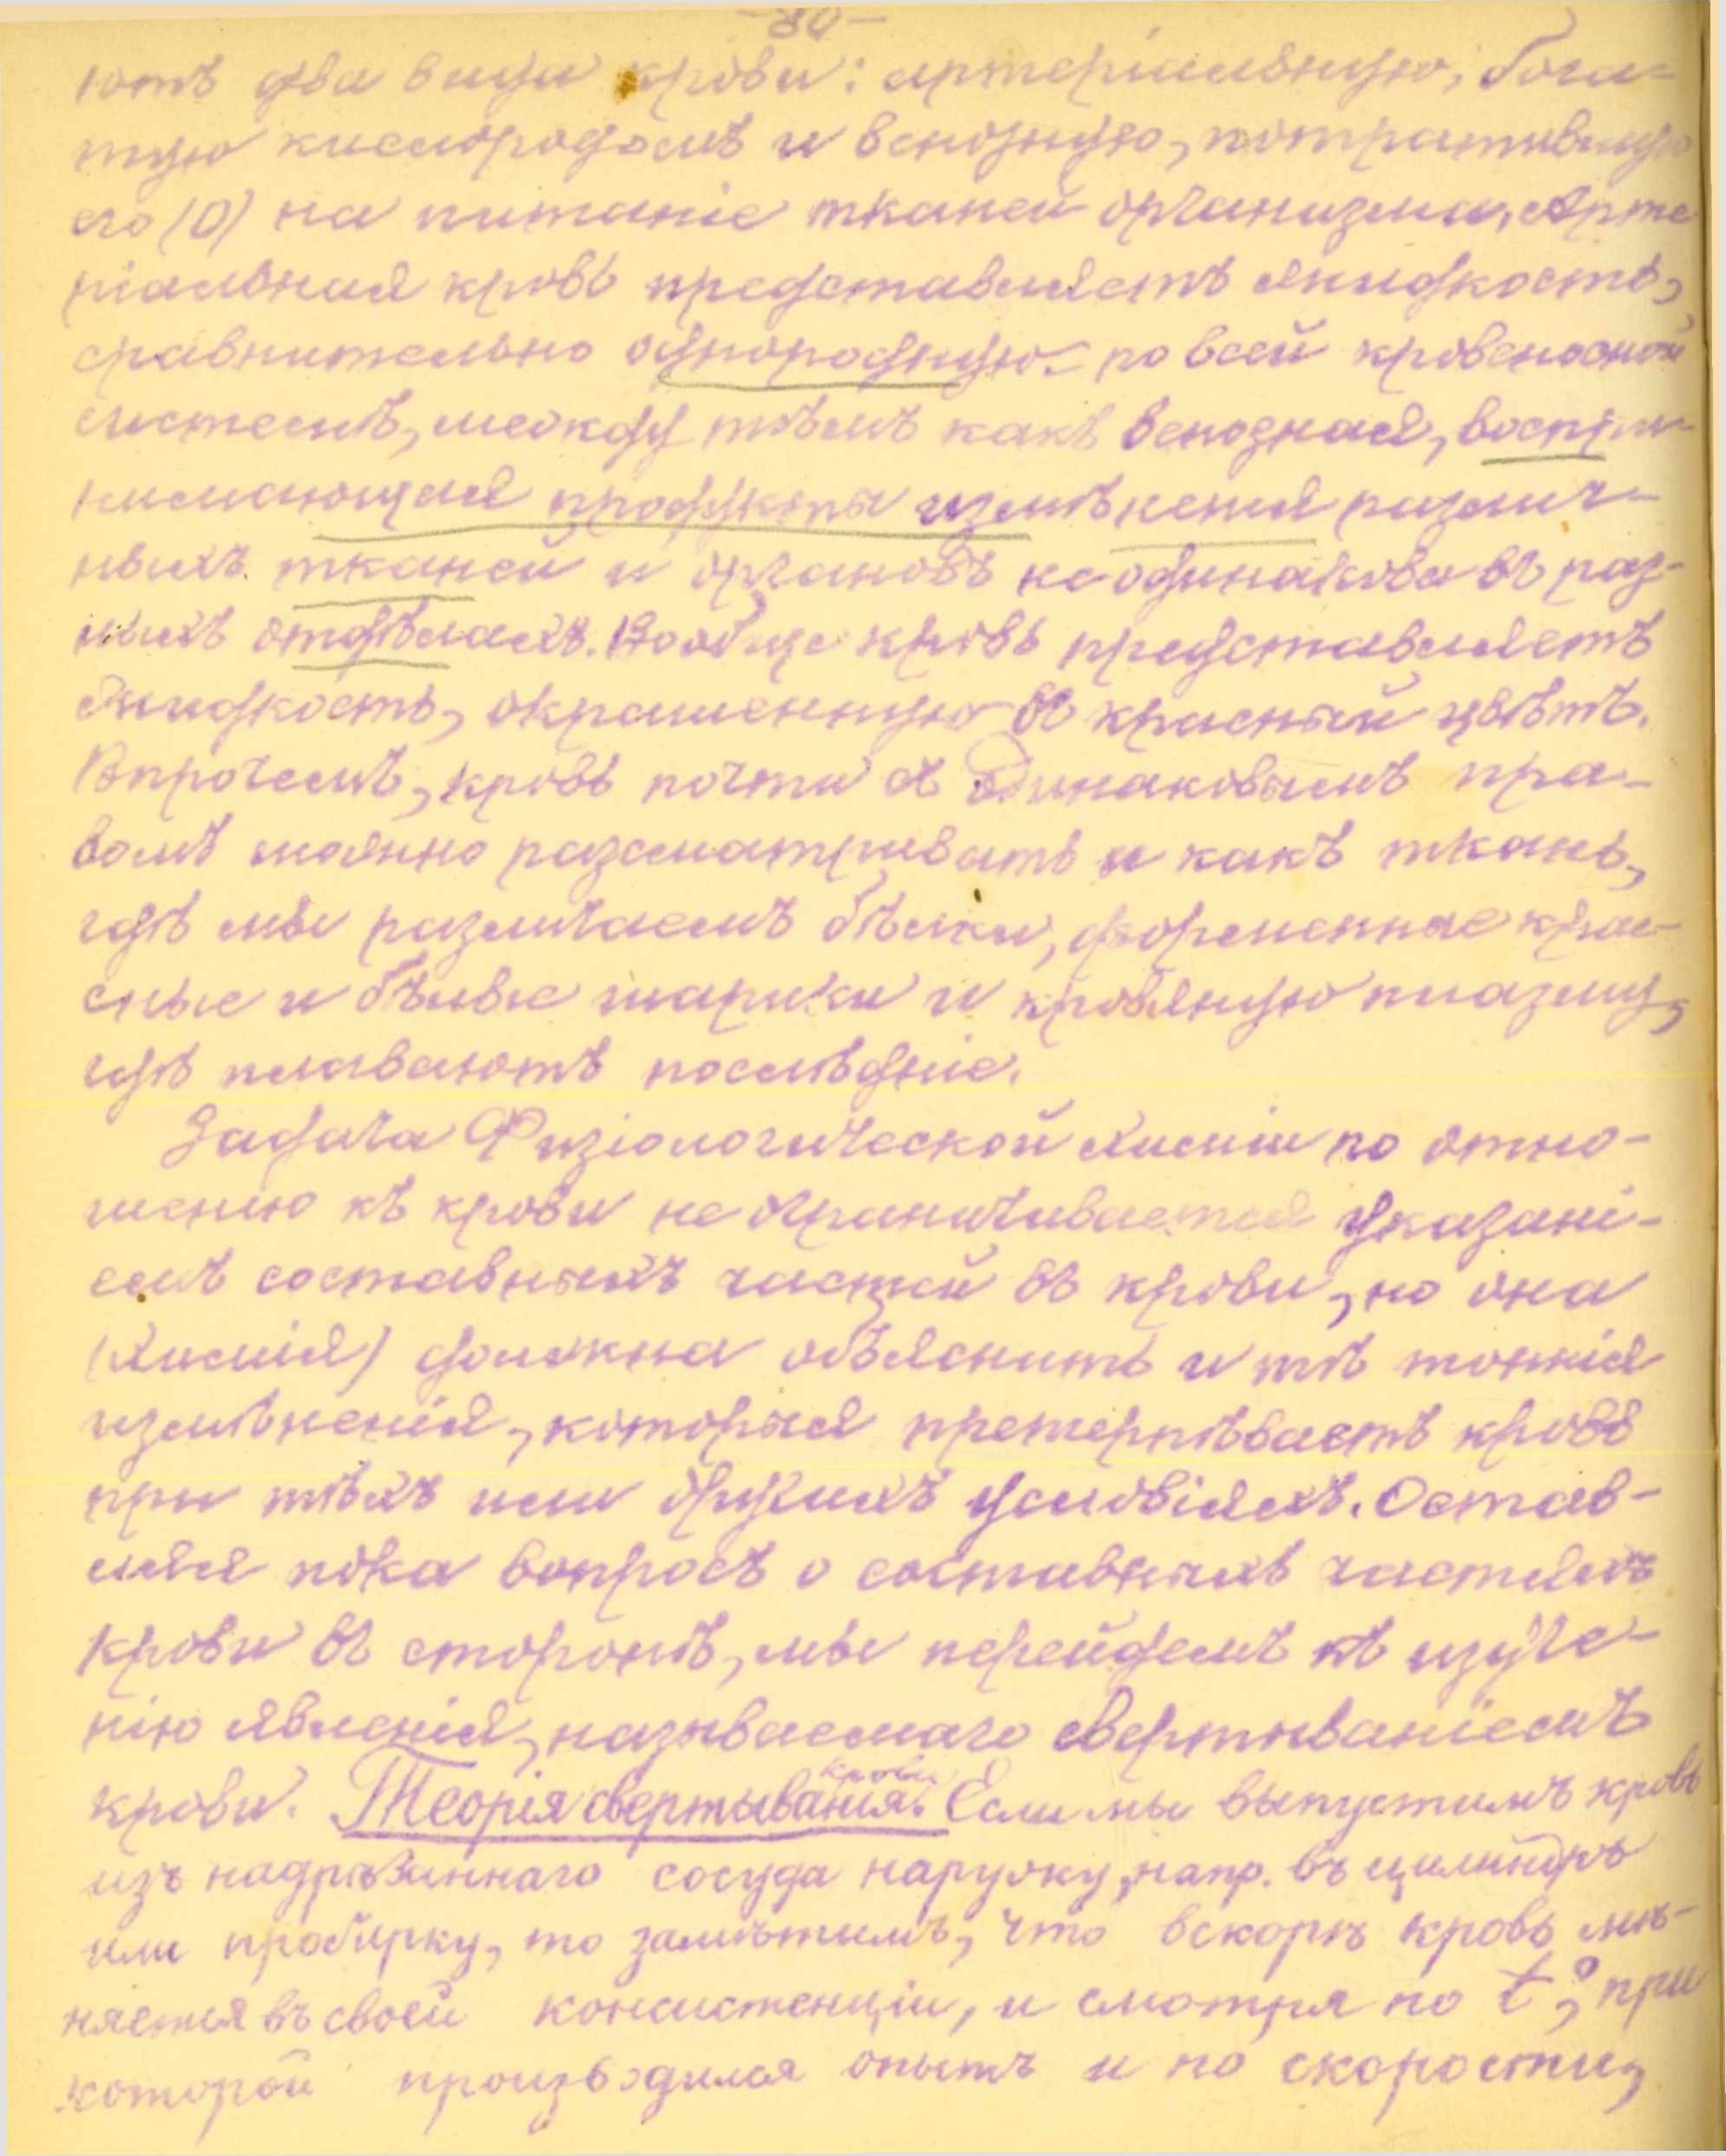 -80-
ютъ два вида крови: артеріальную, бога-
тую кислородомъ и венозную, потратившую
его (О) на питаніе тканей организма. Арте
ріальная кровь представляетъ жидкость,
сравнительно однородную по всей кровеносной
системѣ, между тѣмъ какъ венозная, воспри-
нимающая продукты измѣненія различ-
ныхъ тканей и органовъ не одинакова въ раз-
ныхъ отдѣлахъ. Вообще кровь представляетъ
жидкость, окрашенную въ красный цвѣтъ.
Впрочемъ, кровь почти съ одинаковымъ пра-
вомъ можно разсматривать и какъ ткань,
гдѣ мы различаемъ бѣлки, форменные крас-
сные и бѣлые шарики и кровяную плазму,
гдѣ плаваютъ послѣдніе.
Задача Физіологической Химіи по отно-
шенію къ крови не ограничивается указані-
емъ составныхъ частей въ крови, но она
(Химія) должна объяснить и тѣ тонкія
измѣненія, которыя претерпѣваетъ кровь
при тѣхъ или другихъ условіяхъ. Остав-
ляя пока вопросъ о составныхъ частяхъ
крови въ сторонѣ, мы перейдемъ къ изуче-
нію явленія, называемаго свертываніемъ
крови. Теорія свертыванія крови. Если мы выпустимъ кровь
изъ надрѣзаннаго сосуда наружу, напр. въ цилиндръ
или пробирку, то замѣтимъ, что вскорѣ кровь мѣ-
няется въ своей консистенціи, и смотря по t°, при
которой производился опытъ и по скорости,